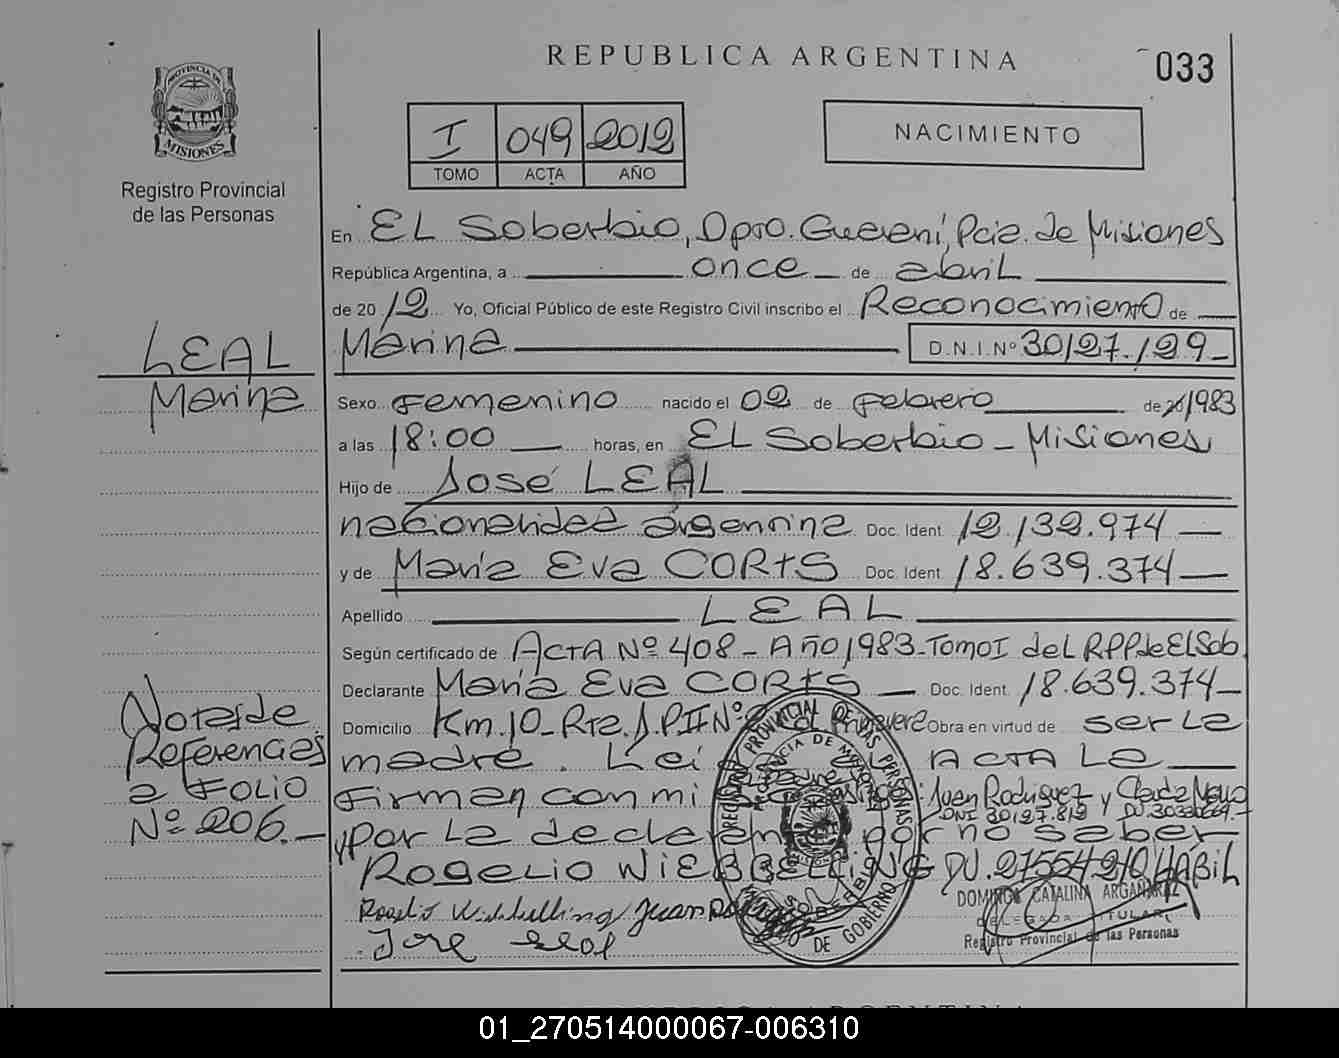 REPUBLICA ARGENTINA
033
PROVINCIA DE
MISIONES
Registro Provincial
de las Personas
I 049 2012
TOMO ACTA AÑO
NACIMIENTO
En EL Soberbio, Dpto. Guaraní, Pcia. de Misiones
República Argentina, a once de abril
de 2012 Yo, Oficial Público de este Registro Civil inscribo el Reconocimiento de
LEAL
Marina
Marina D.N.I. Nº 30.127.129
Sexo Femenino nacido el 02 de Febrero de 1983
a las 18:00 horas, en EL Soberbio - Misiones
Hijo de José LEAL
nacionalidad argentina Doc. Ident. 12.132.974
y de María Eva CORTS Doc. Ident. 18.639.374
Apellido LEAL
Según certificado de ACTA Nº 408 - Año 1983 - Tomo I del RPP de El Sob.
Declarante María Eva CORTS Doc. Ident. 18.639.374
Notas de
Referencias
a FOLIO
Nº 206.
Domicilio Km. 10 - Rta. Obra en virtud de ser la
madre. Leí ACTA La
Firman con mi Juan Rodriguez y
DNI 30127.819 DU.
y por la declarante por no saber
Rogelio WIEBBELLING DU. HABIL
Juan
Jose Leal
REGISTRO PROVINCIAL DE LAS PERSONAS
PROVINCIA DE MISIONES
SOBERBIO
DE GOBIERNO
DOMINGA CATALINA
DELEGADA TITULAR
Registro Provincial de las Personas
01_270514000067-006310